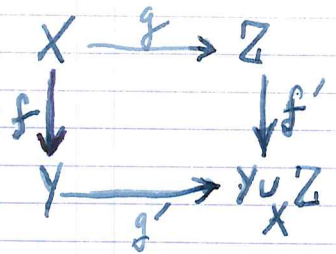 X g Z
f f'
Y g' Y∪Z
X